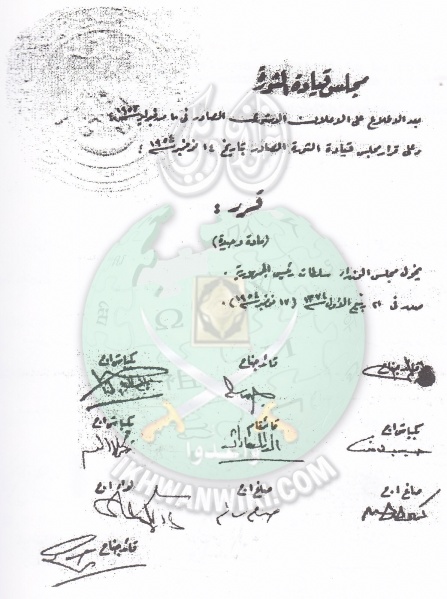 مجلس قيادة الثورة
بعد الاطلاع على الاعلان الدستورى الصادر فى ١٠ من فبراير سنة ١٩٥٣
وعلى قرار مجلس قيادة الثورة الصادر بتاريخ ١٤ نوفمبر سنة ١٩٥٤ ؛
قرر :
(مادة وحيدة)
يخول مجلس الوزراء سلطات رئيس الجمهورية .
صدر فى ٢١ ربيع الأول سنة ١٣٧٤ (١٧ نوفمبر سنة ١٩٥٤) .
قائد جناح قائد جناح بكباشى أ.ح
بكباشى أ.ح قائمقام بكباشى أ.ح
صاغ أ.ح صاغ أ.ح لواء أ.ح
قائد جناح
واعدوا
IKHWANWIKI.COM